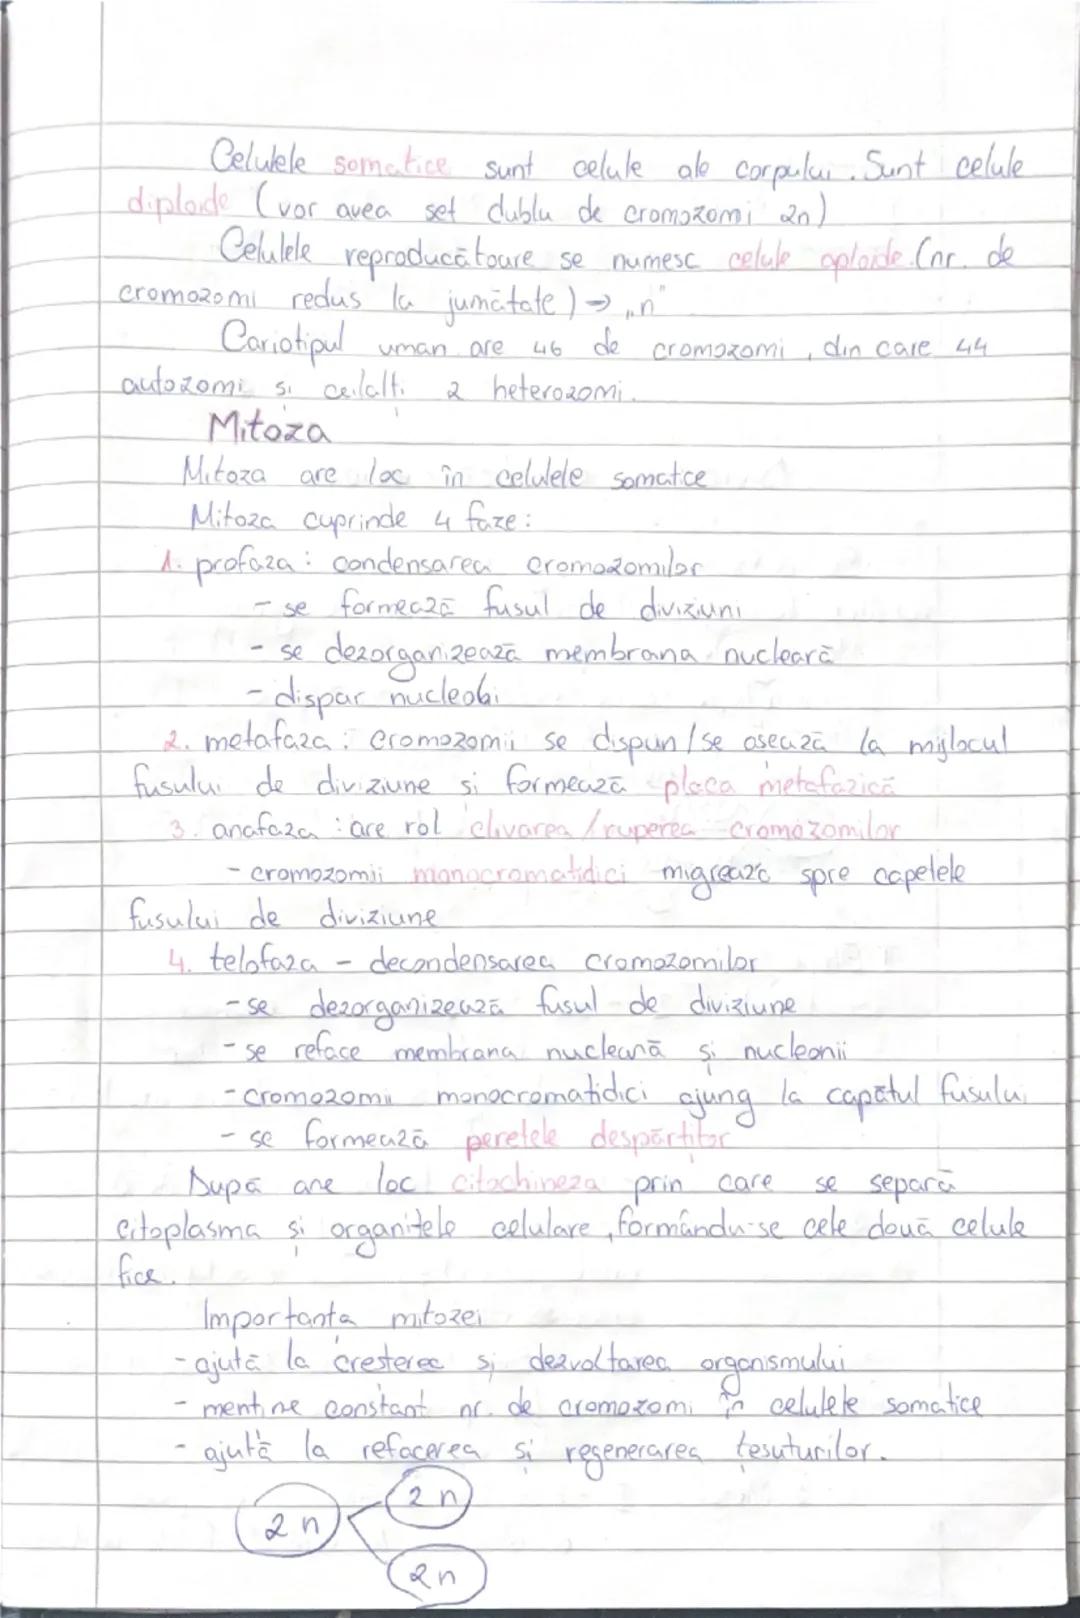 Celulele somatice sunt celule ale corpului. Sunt celule
diploide (vor avea set dublu de cromozomi 2n)
Celulele reproducătoare se numesc celule aploide (nr. de
cromozomi redus la jumătate) → „n"
Cariotipul uman are 46 de cromozomi, din care 44
autozomi și ceilalți 2 heterozomi.
Mitoza
Mitoza are loc în celulele somatice
Mitoza cuprinde 4 faze:
1. profaza: condensarea cromozomilor
- se formează fusul de diviziuni
- se dezorganizează membrana nucleară
- dispar nucleobi
2. metafaza: cromozomii se dispun/se asează la mijlocul
fusului de diviziune și formează placa metafazică
3. anafaza: are rol clivarea/ruperea cromozomilor
- cromozomii monocromatidici migrează spre capetele
fusului de diviziune
4. telofaza - decondensarea cromozomilor
- se dezorganizează fusul de diviziune
- se reface membrana nucleară și nucleonii
- cromozomii monocromatidici ajung la capătul fusului
- se formează peretele despărțitor
După are loc citochineza prin care se separă
citoplasma și organitele celulare, formându-se cele două celule
fice.
Importanța mitozei
- ajută la cresterea și dezvoltarea organismului
- menține constant nr. de cromozomi în celulele somatice
- ajută la refacerea și regenerarea țesuturilor.
2n
2n
2n